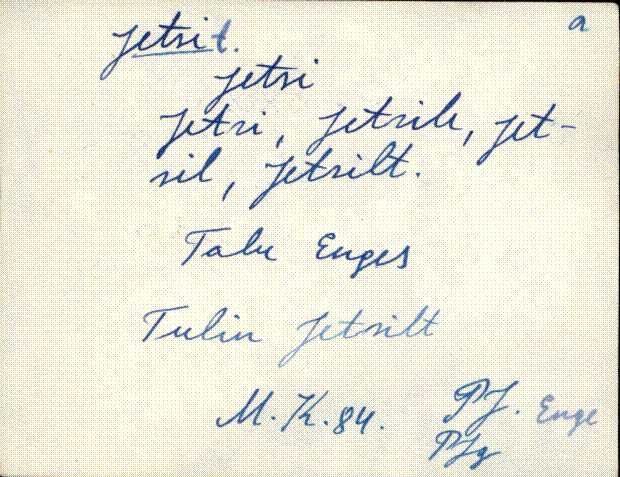 a
Jetsit.
Jetsi
Jetsi, Jetsile, Jet-
sil, Jetsilt.
Talu Enges
Tulin Jetsilt
M. K. 84. PJ. Enge